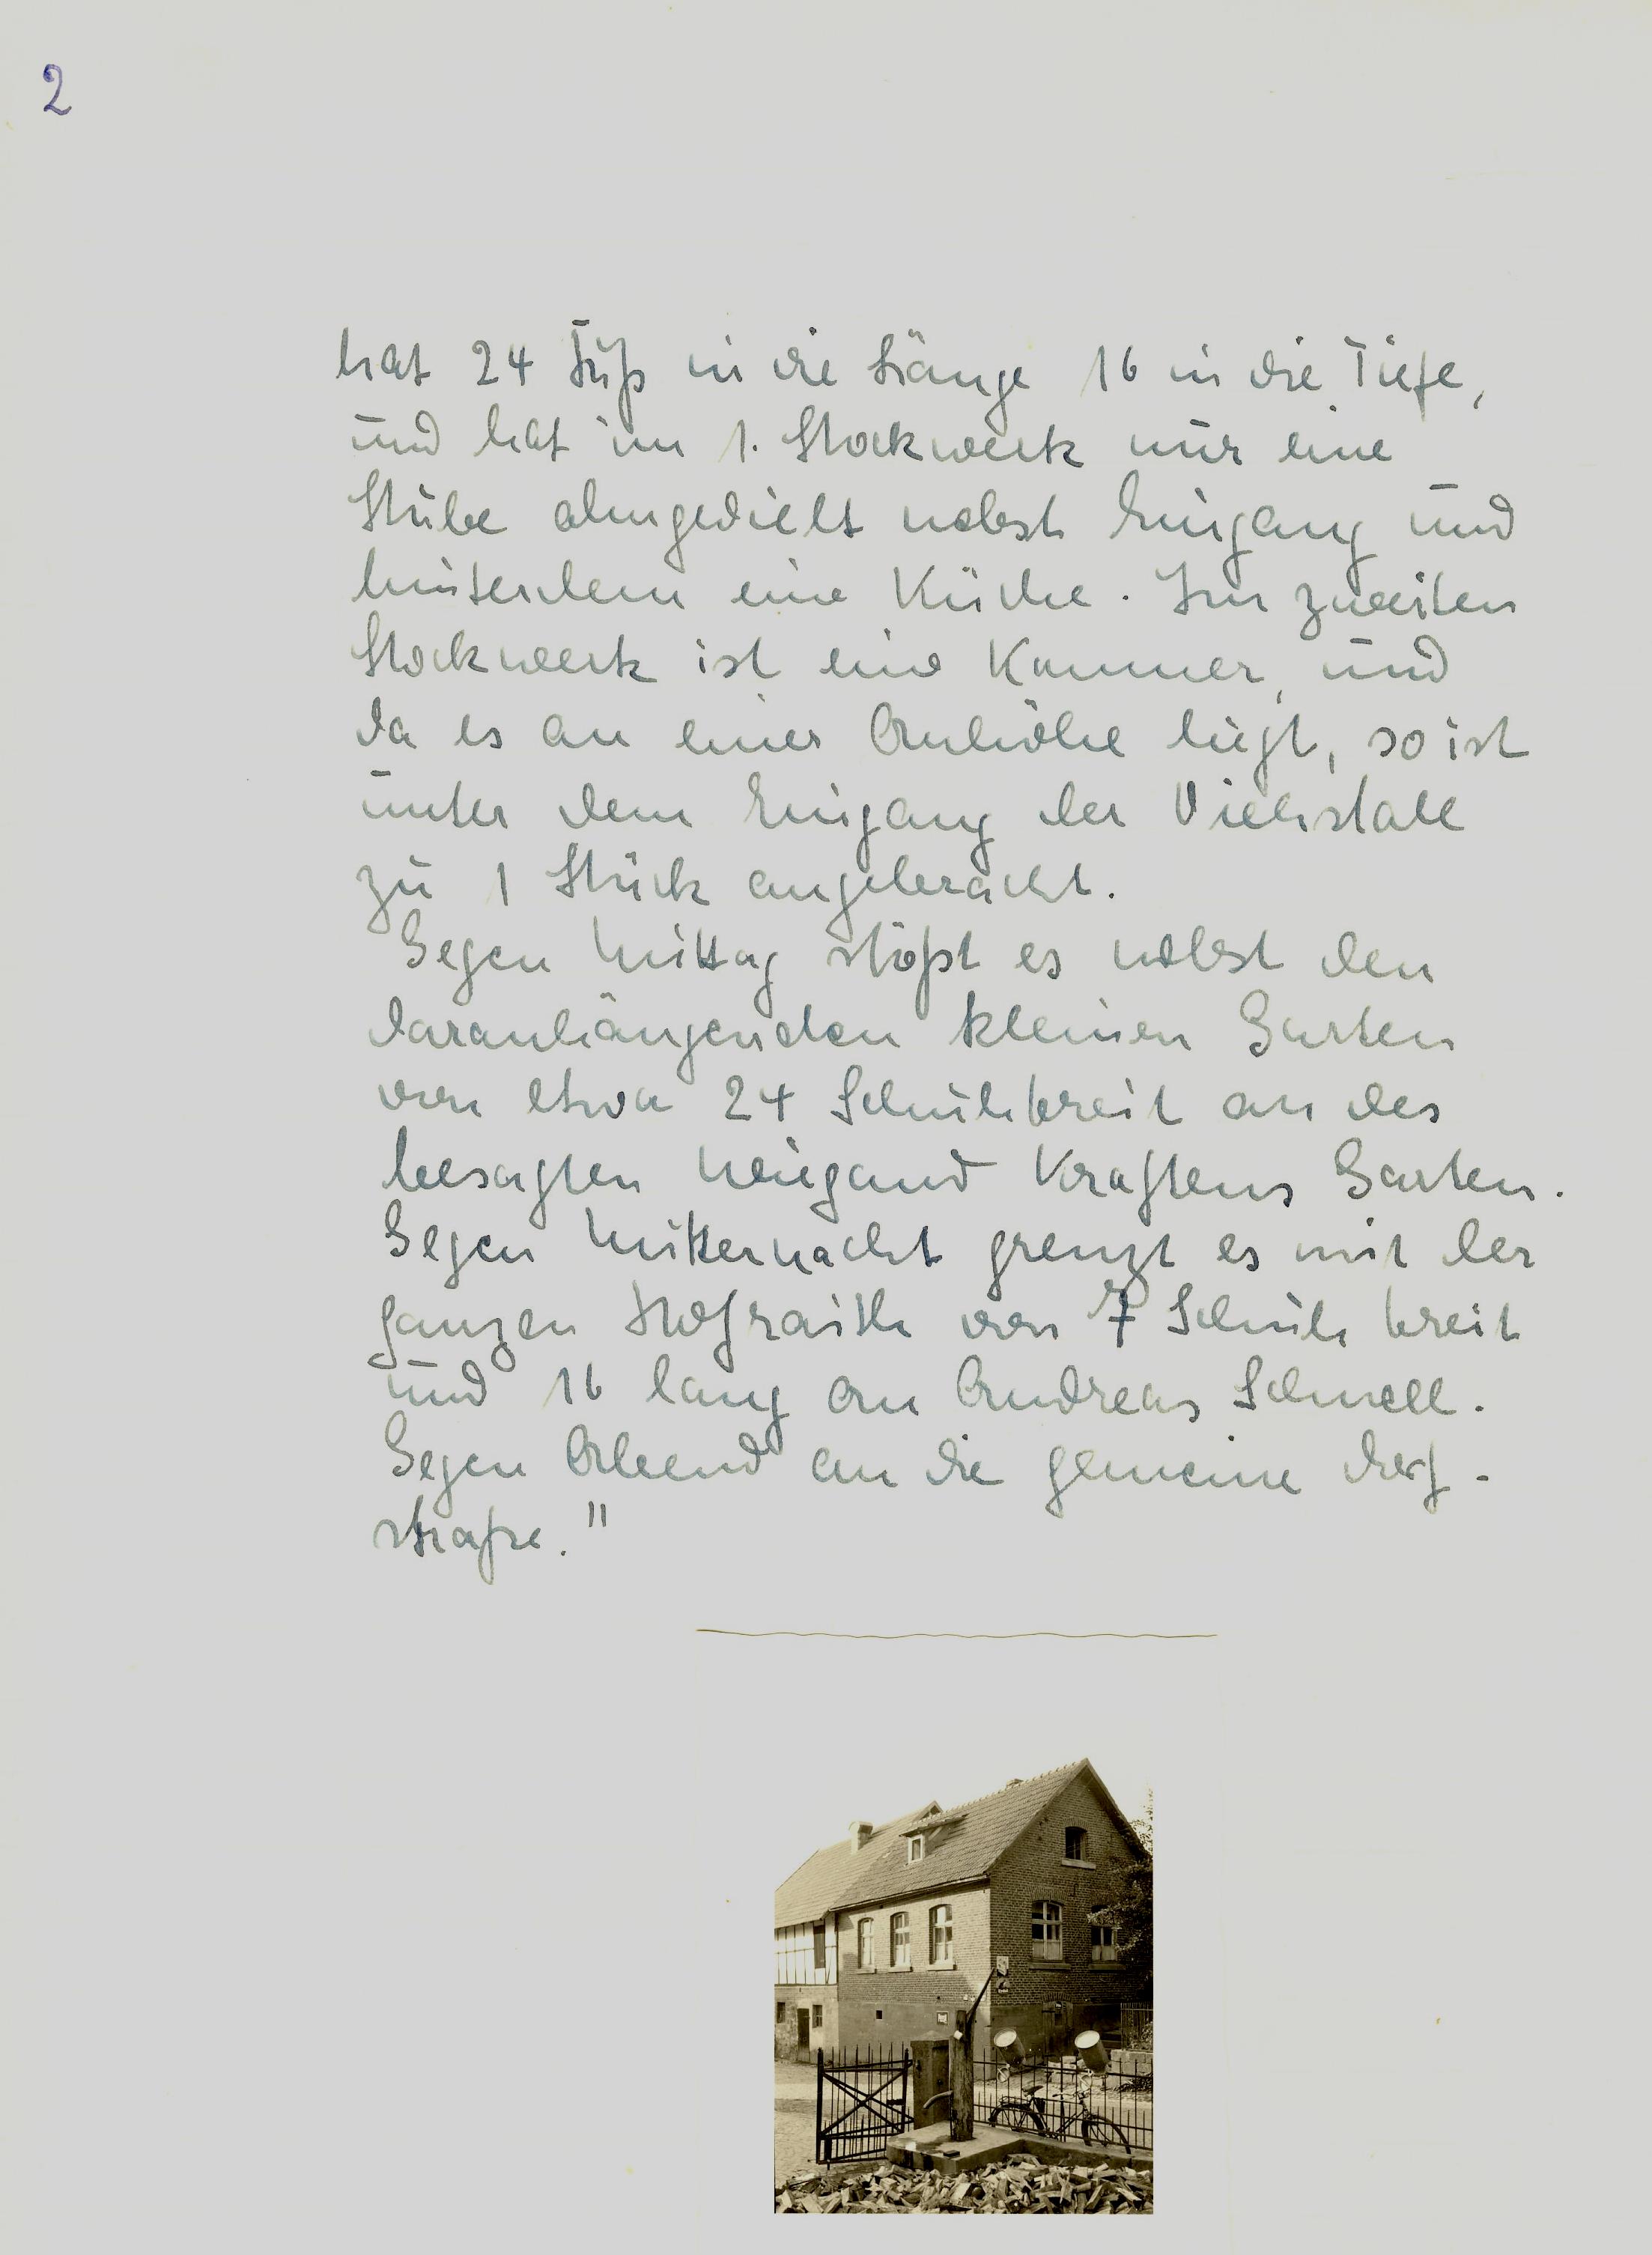 2
hat 24 Fuß in die Länge 16 in die Tiefe,
und hat im 1. Stockwerk nur eine
Stube ohngedielt nebst Eingang und
hinterdem eine Küche. Im zweiten
Stockwerk ist eine Kammer, und
da es an einer Anhöhe liegt, so ist
unter dem Eingang der Viehstall
zu 1 Stück angebracht.
Gegen Mittag stößt es nebst den
daranhängenden kleinen Garten
von etwa 24 Schuh breit an des
besagten Weigand Kraftens Garten.
Gegen Mitternacht grenzt es mit der
ganzen Hofraith von 7 Schuh breit
und 16 lang an Andreas Schnell.
Gegen Abend an die gemeine Dorf-
straße."